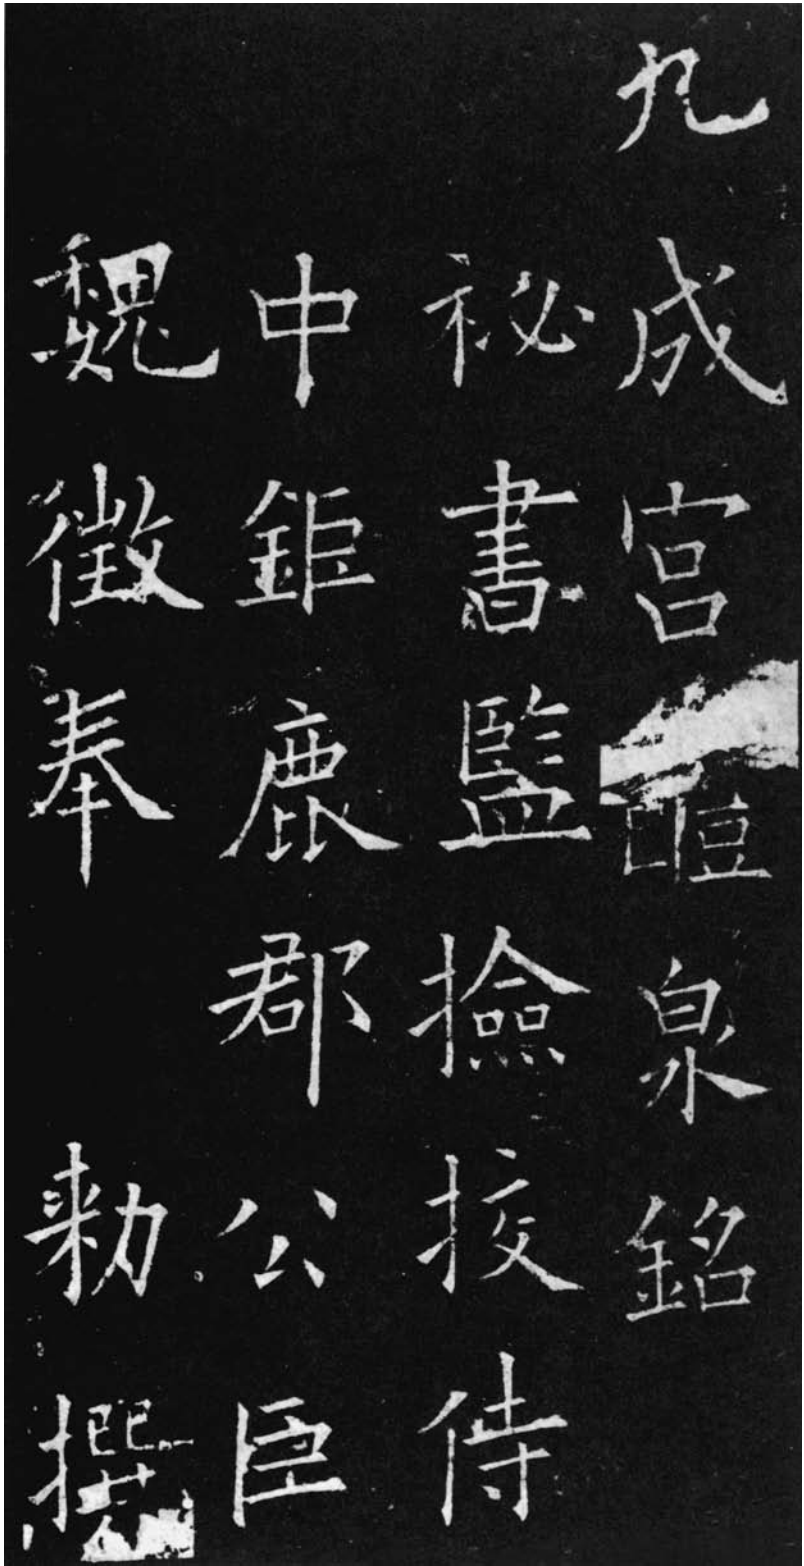 九成宮醴泉銘
祕書監撿挍侍
中鉅鹿郡公臣
魏徵奉敕撰